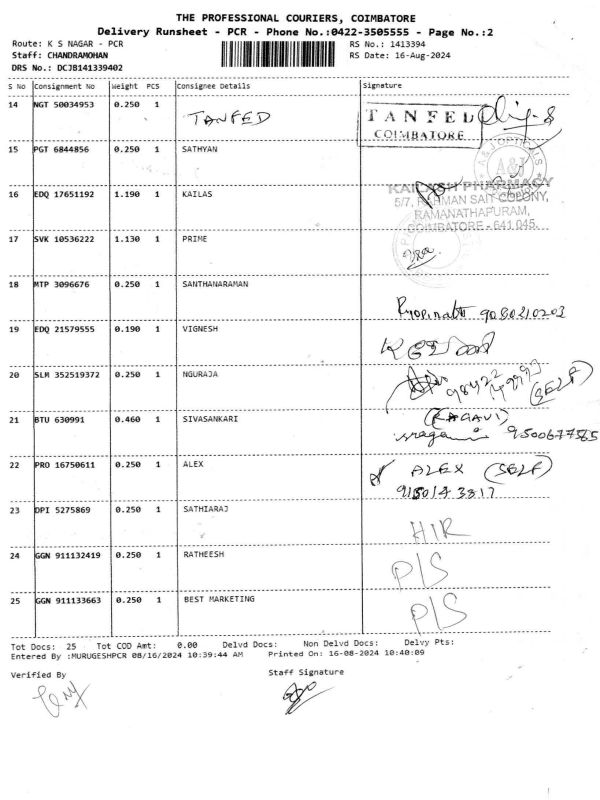 THE PROFESSIONAL COURIERS, COIMBATORE
Delivery Runsheet - PCR - Phone No.:0422-3505555 - Page No.:2
Route: K S NAGAR - PCR RS No.: 1413394
Staff: CHANDRAMOHAN RS Date: 16-Aug-2024
DRS No.: DCJB141339402
S No Consignment No Weight PCS Consignee Details Signature
14 NGT 50034953 0.250 1 TANFED TANFED
COIMBATORE
15 PGT 6844856 0.250 1 SATHYAN
A&J OPTICALS
A&J
16 EDQ 17651192 1.190 1 KAILAS KAILASH PHARMACY
5/7, RAHMAN SAIT COLONY,
RAMANATHAPURAM,
COIMBATORE - 641 045.
17 SVK 10536222 1.130 1 PRIME
18 MTP 3096676 0.250 1 SANTHANARAMAN
9080210203
19 EDQ 21579555 0.190 1 VIGNESH
20 SLM 352519372 0.250 1 NGURAJA
(SELF)
21 BTU 630991 0.460 1 SIVASANKARI (RAGAVI)
9500677565
22 PRO 16750611 0.250 1 ALEX ALEX (SELF)
23 DPI 5275869 0.250 1 SATHIARAJ
24 GGN 911132419 0.250 1 RATHEESH P/S
25 GGN 911133663 0.250 1 BEST MARKETING P/S
Tot Docs: 25 Tot COD Amt: 0.00 Delvd Docs: Non Delvd Docs: Delvy Pts:
Entered By :MURUGESHPCR 08/16/2024 10:39:44 AM Printed On: 16-08-2024 10:40:09
Verified By Staff Signature